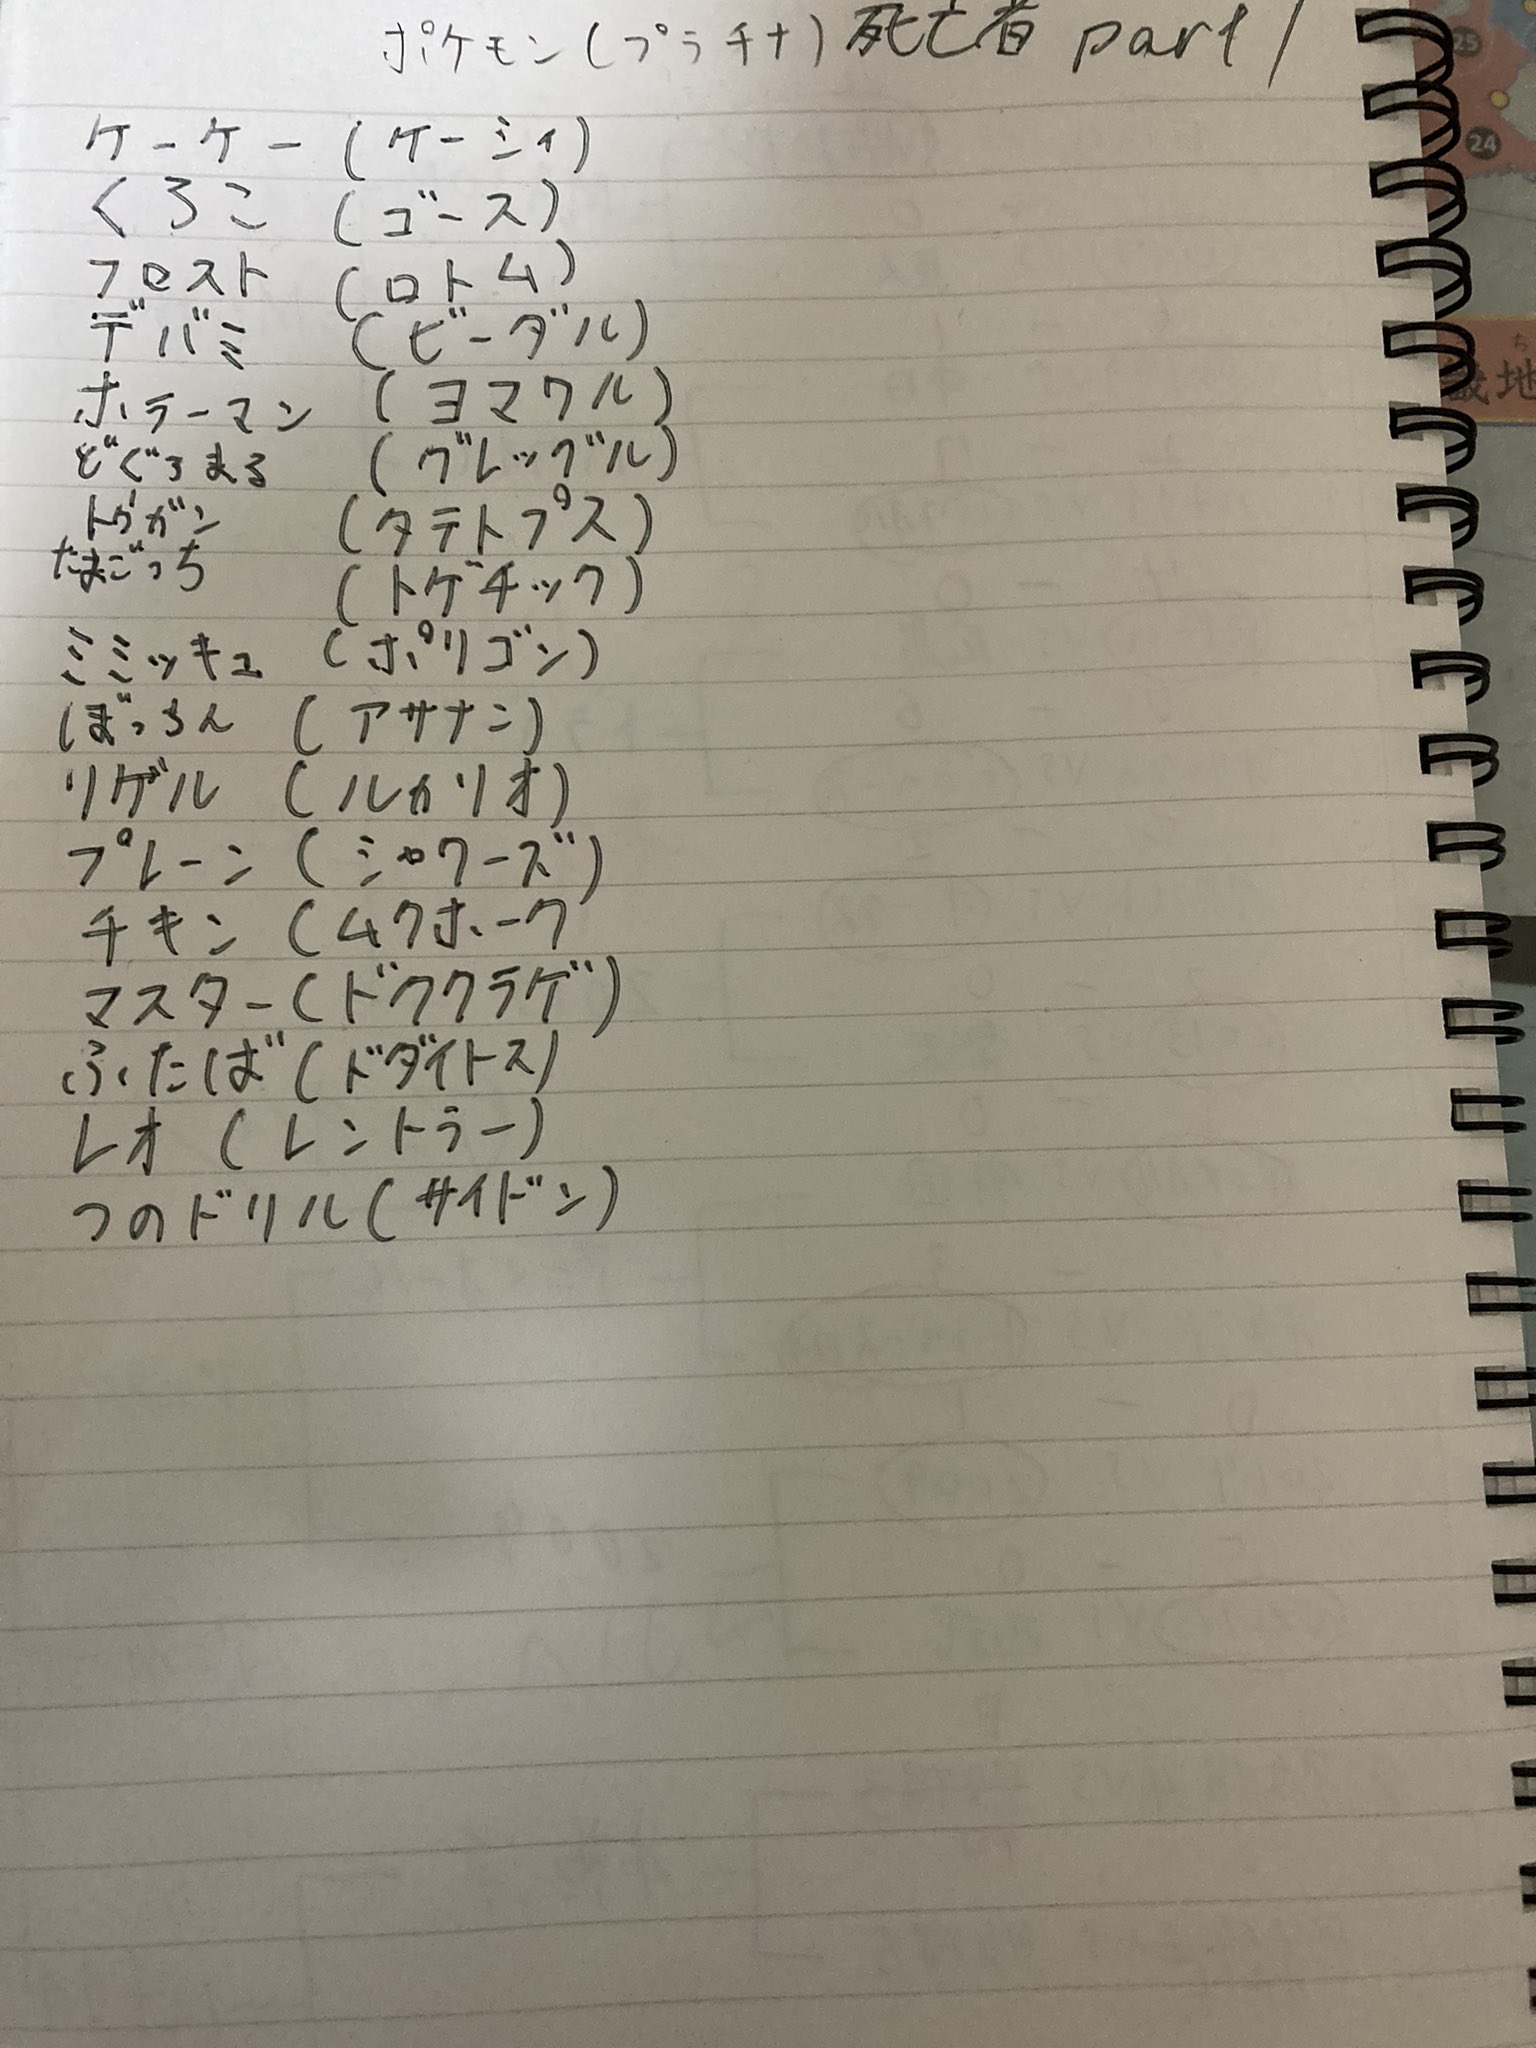 ポケモン(プラチナ)死亡者 part1
ケーケー(ケーシィ)
くろこ(ゴース)
フロスト(ロトム)
デバミ(ビーダル)
ホラーマン(ヨマワル)
どぐろまる(グレッグル)
トゲガン(タテトプス)
たまごっち(トゲチック)
ミミッキュ(ポリゴン)
ぼっちん(アサナン)
リゲル(ルカリオ)
プレーン(シャワーズ)
チキン(ムクホーク
マスター(ドククラゲ)
ふたば(ドダイトス)
レオ(レントラー)
つのドリル(サイドン)
25
24
ち
畿地